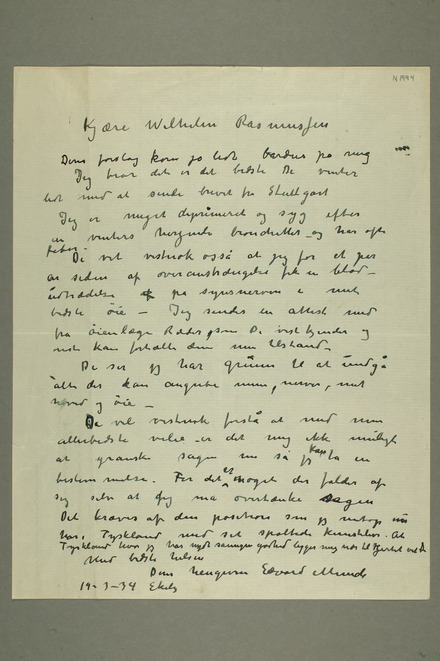 N 1994
Kjære Wilhelm Rasmussen
Deres forslag kom jo lidt bardus på mig
Jeg tror det er det bedste De venter
lidt med at sende brevet fra Stuttgart
Jeg er meget deprimeret og syg efter
en vinters bronchitter og har ofte
feber.
De vet vistnok også at jeg for et par
år siden af overanstrængelse fik en blod-
udtrædelse på synsnerven i mit
bedste öie – Jeg sender en attest med
fra öienlæge Ræder, som De vist kjender og
som kan fortælle dem min tilstand.
De ser jeg har grund til at undgå
alt der kan angribe mine nerver, mit
hoved og öie –
De vil vistnok forstå at med min
allerbedste vilie er det mig ikke muligt
at granske sagen nu så jeg kan ta en
bestemmelse. For det er noget der falder af
sig selv at jeg må overtænke sagen
Det kræves af den position som jeg netop nu
har i Tyskland med sit spaltede kunstliv. At
Tyskland hvor jeg har nydt saamegen godhed ligger mig nær til hjertet vet De
Med bedste hilsen
Deres hengivne Edvard Munch
19-3-34 Ekely